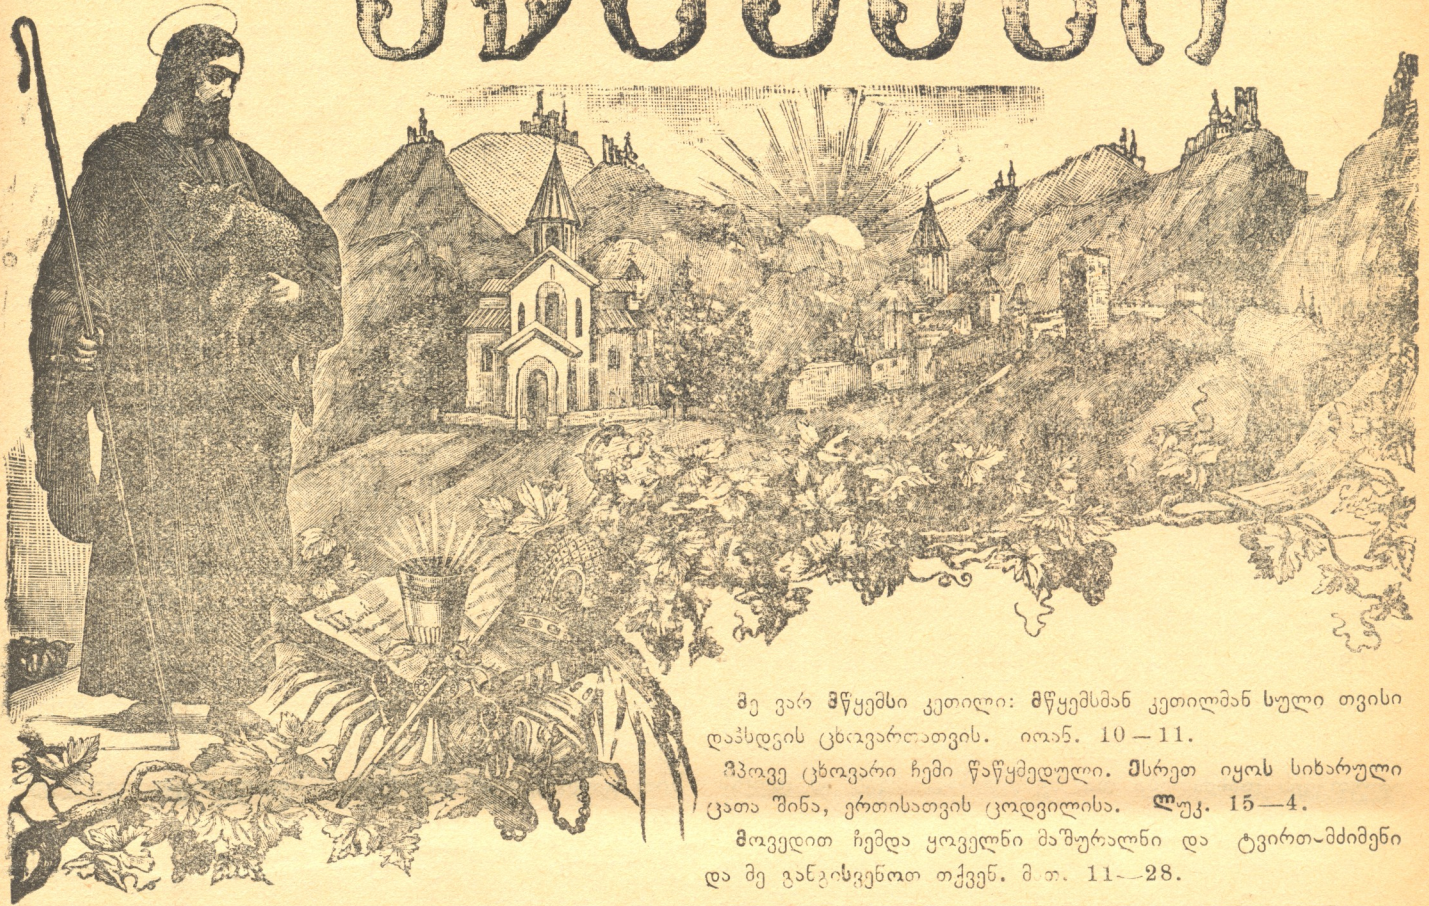 მე ვარ მწყემსი კეთილი: მწყემსმან კეთილმან სული თვისი
დაჰსდვის ცხოვართათვის. იოან. 10—11.
ვჰპოვე ცხოვარი ჩემი წაწყმედული. ესრეთ იყოს სიხარული
ცათა შინა, ერთისათვის ცოდვილისა. ლუკ. 15—4.
მოვედით ჩემდა ყოველნი მაშურალნი და ტვირთ-მძიმენი
და მე განგისვენოთ თქვენ. მ.თ. 11—28.